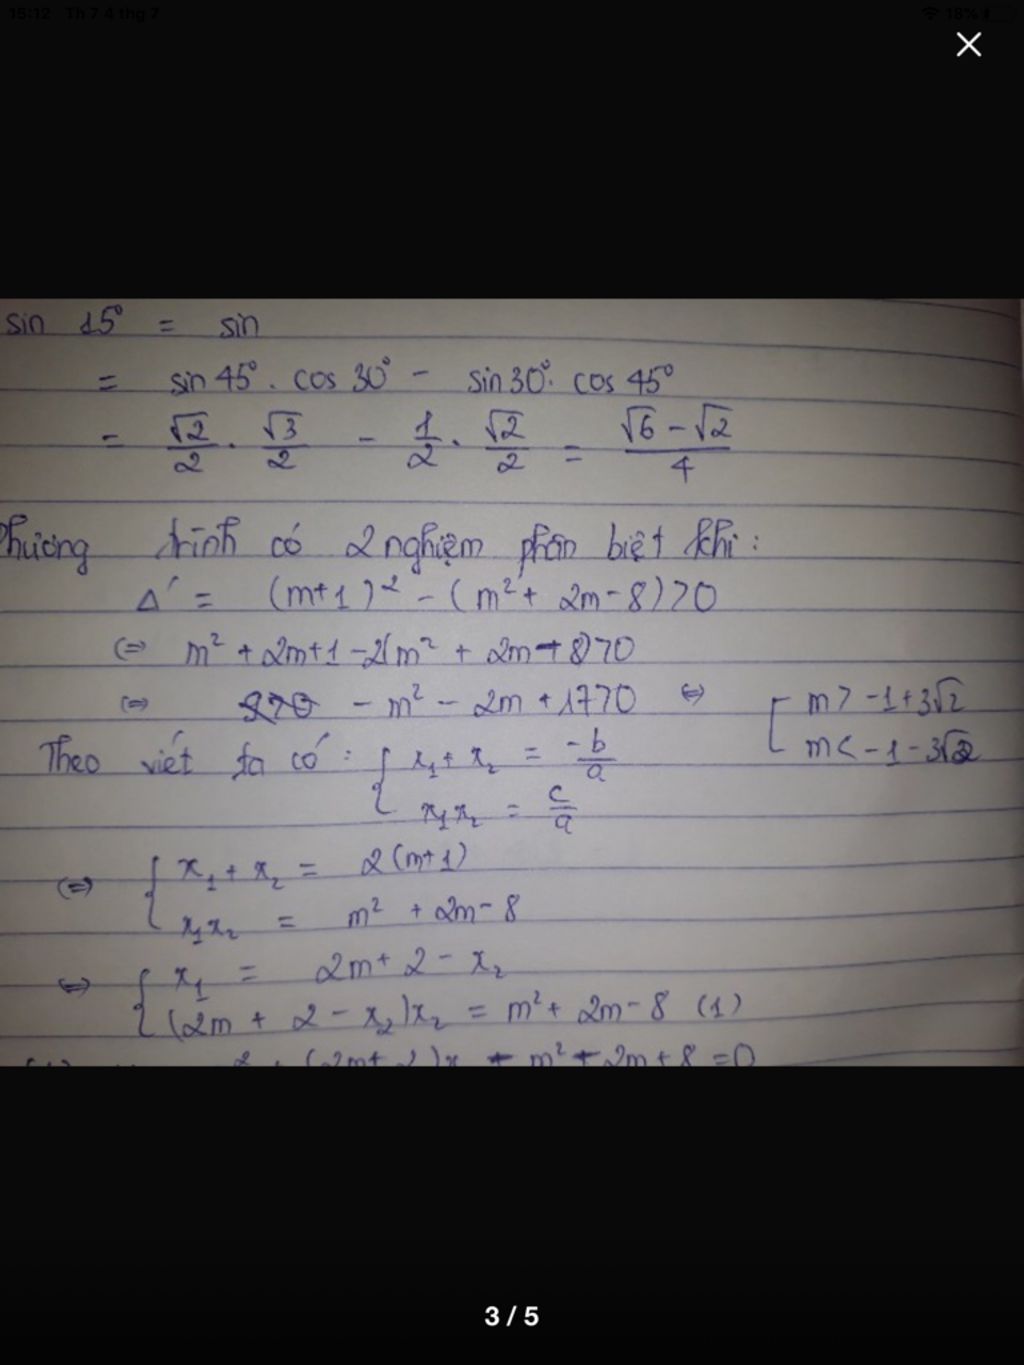 15:12 Th 7 4 thg 7 18%
sin 15° = sin
= sin 45° . cos 30° - sin 30° . cos 45°
= √2/2 . √3/2 - 1/2 . √2/2 = (√6 - √2)/4
Phương trình có 2 nghiệm phân biệt khi :
Δ' = (m+1)² - (m² + 2m - 8) > 0
⇔ m² + 2m + 1 - 2(m² + 2m - 8) > 0
⇔ - m² - 2m + 17 > 0 ⇔ [ m > -1 + 3√2
m < -1 - 3√2
Theo viét ta có : { x₁ + x₂ = -b/a
x₁x₂ = c/a
⇔ { x₁ + x₂ = 2(m+1)
x₁x₂ = m² + 2m - 8
⇔ { x₁ = 2m + 2 - x₂
(2m + 2 - x₂)x₂ = m² + 2m - 8 (1)
m² + 2m + 8 = 0
3 / 5